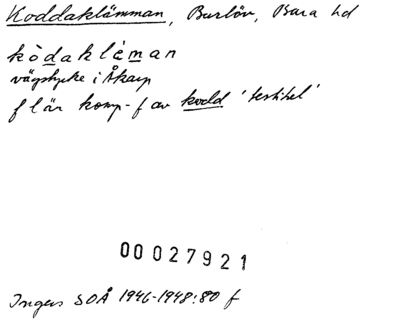 Koddaklämman, Burlöv, Bara hd
kòdaklèman
vägstycke i Åkarp
f lär komp-f av kodd 'testikel'
00027921
Ingers SOÅ 1946-1948:80 f